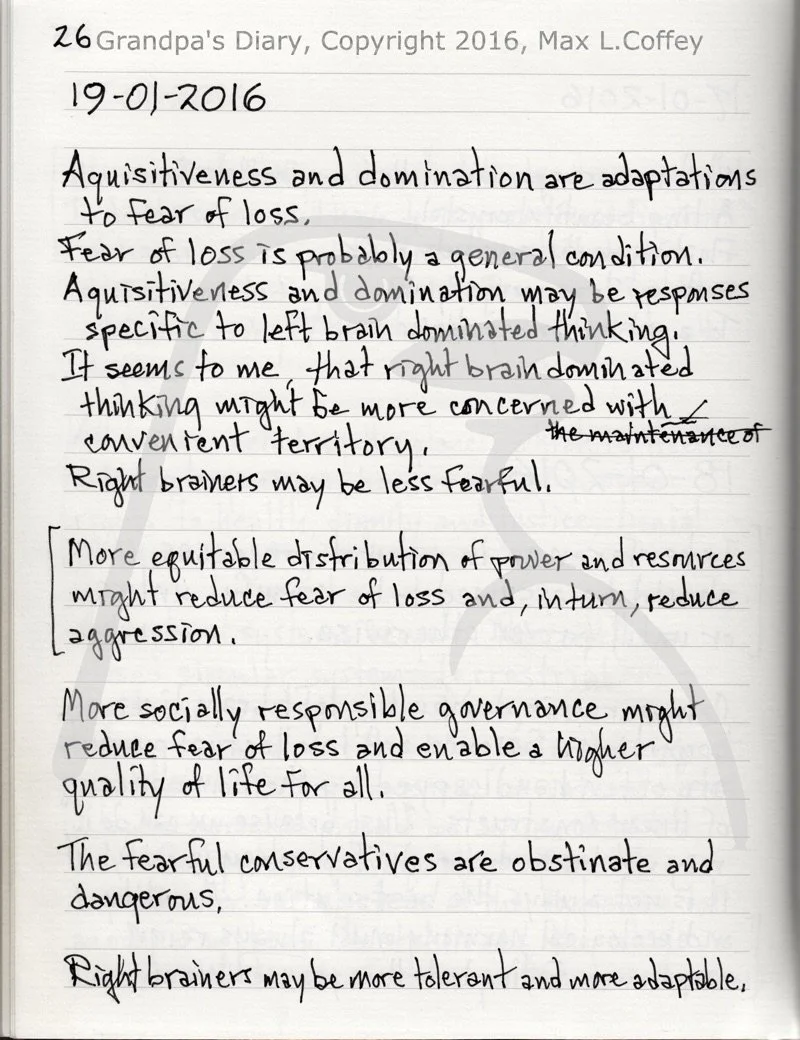 26 Grandpa's Diary, Copyright 2016, Max L.Coffey
19-01-2016
Aquisitiveness and domination are adaptations
to fear of loss.
Fear of loss is probably a general condition.
Aquisitiveness and domination may be responses
specific to left brain dominated thinking.
It seems to me, that right brain dominated
thinking might be more concerned with
the maintenance of
convenient territory.
Right brainers may be less fearful.
More equitable distribution of power and resources
might reduce fear of loss and, in turn, reduce
aggression.
More socially responsible governance might
reduce fear of loss and enable a higher
quality of life for all.
The fearful conservatives are obstinate and
dangerous.
Right brainers may be more tolerant and more adaptable.